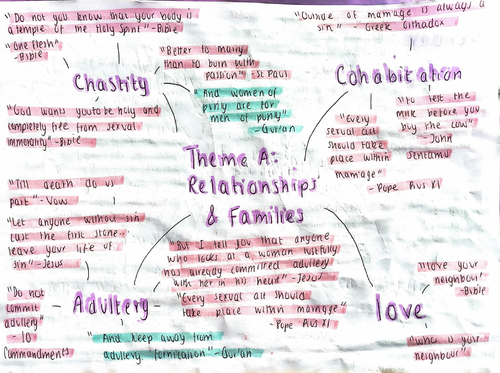 "Do not you know that your body is
a temple of the Holy Spirit" -Bible
"One flesh"
-Bible
Chastity
"Better to marry
than to burn with
passion" - St Paul
"And women of
purity are for
men of purity"
-Qur'an
"God wants you to be holy and
completely free from sexual
immorality" -Bible
"Outside of marriage is always a
sin" - Greek Orthodox
Cohabitation
"Every
sexual act
should take
place within
marriage"
- Pope
"To test the
milk before you
buy the cow"
- John
Sentamu
Theme A:
Relationships
& Families
"Till death do us
part" - Vows
"Let anyone without sin
cast the first stone..
leave your life of
sin" -Jesus
Adultery
"Do not
commit
adultery"
- 10
Commandments
"And keep away from
adultery/fornication" -Qur'an
"But I tell you that anyone
who looks at a woman lustfully
has already committed adultery
with her in his head" -Jesus
"Every sexual act should
take place within marriage"
- Pope
love
"love your
neighbour"
-Bible
"who is your
neighbour"